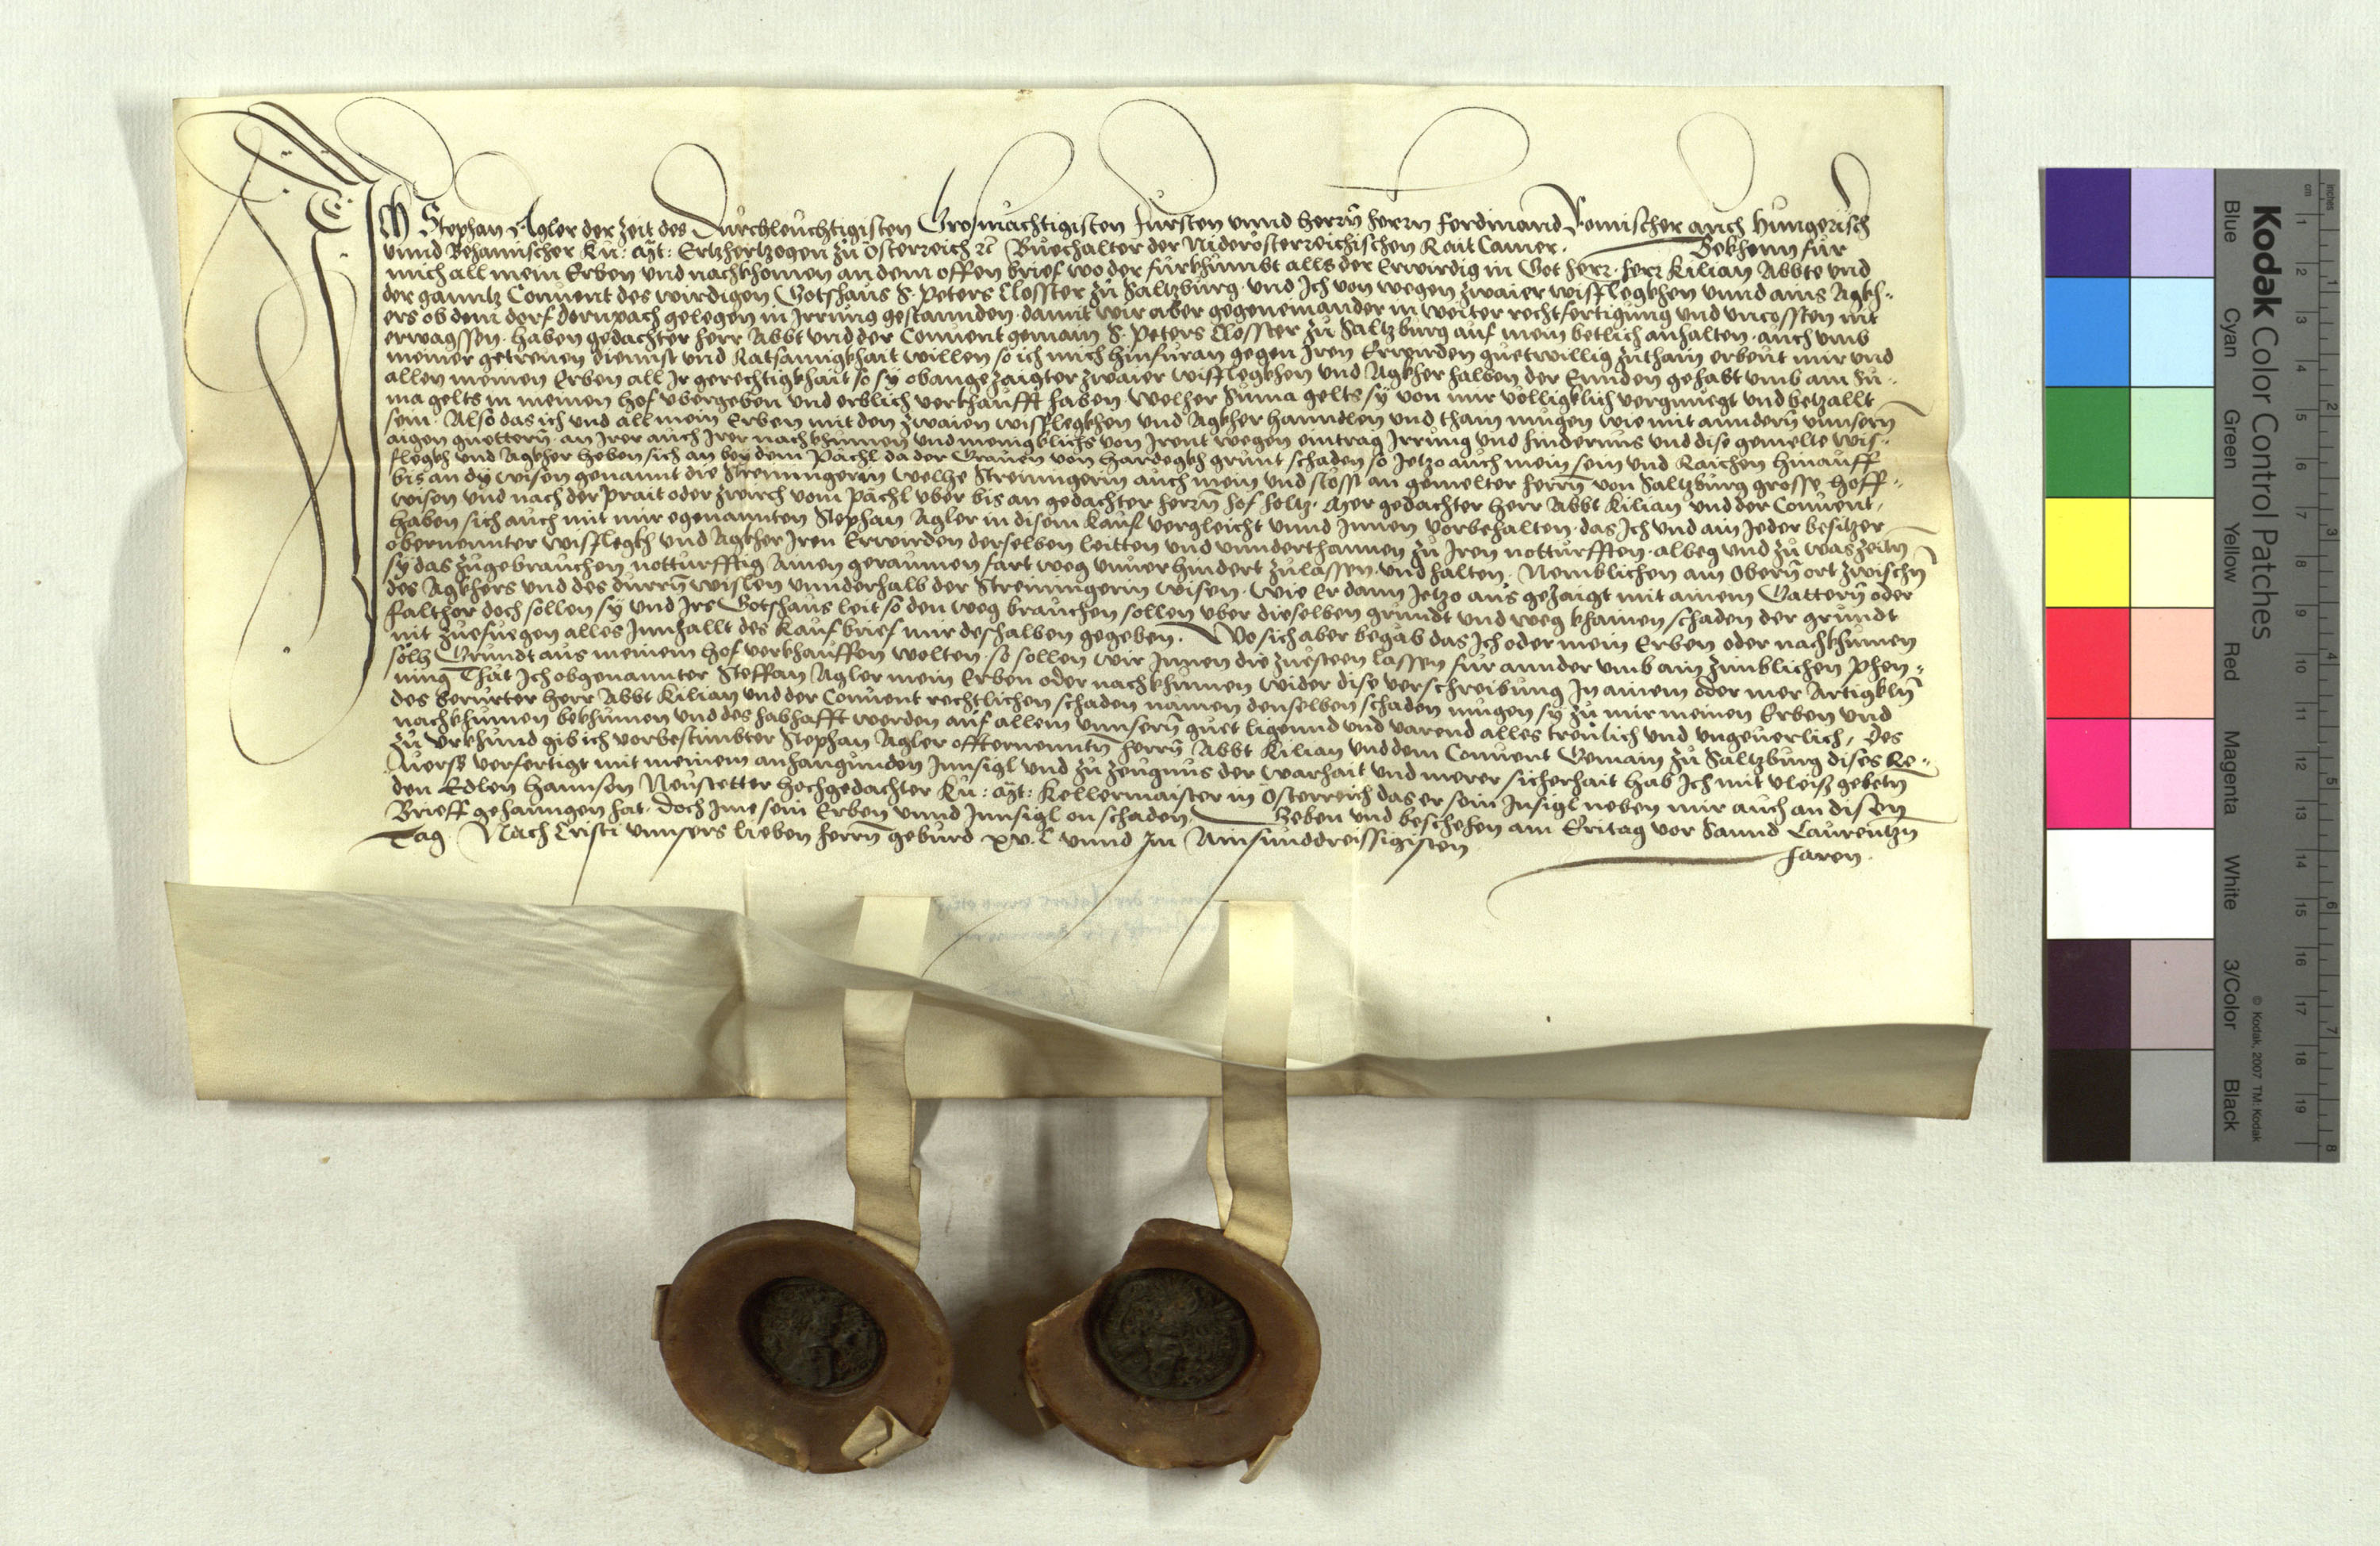 Ich Stephan Agler der zeit des Durchleuchtigisten Grosmachtigisten Fürsten vnnd herrn herrn Ferdinand Romischer auch Hungerisch
vnnd Behamischer Kü: Mt: Ertzhertzogen zü Osterreich etc Büechalter der Niderosterreichischen Rait Camer. Bekhenn für
mich all mein Erben vnd nachkhomen an dem offen brief wo der fürkhümbt alls der Erwirdig in Got herr. herr Kilian Abbte vnd
der ganntz Conuent des wirdigen Gotshaus S. Peters Closster zü Saltzburg. vnd Ich von wegen zwaier wisflegkhen vnnd ains Agkh=
ers ob dem dorf dornpach gelegen in Irrung gestannden. damit wir aber gegeneinander in weiter rechtfertigung vnd vncossten nit
erwagssen. haben gedachter herr Abbt vnd der Conuent gemain S. Peters Closster zü Saltzburg auf mein betlich anhalten. auch vmb
meiner getreuen diennst vnd Ratsamigkhait willen so ich mich hinfüran gegen Iren Erwirden guetwillig züthain erbeut mir vnd
allen meinen Erben all Ir gerechtigkhait so sy obangezaigter zwaier wisflegkhen vnd Agkher halben der Ennden gehabt vmb ain Sü=
ma gelts in meinen hof vbergeben vnd erblich verkhaufft haben. welher Suma gelts sy von mir völligklich vergnuegt vnd betzallt
sein. Also das ich vnd all mein Erben mit den zwaien wisflegkhen vnd Agkher hanndlen vnd thain mügen wie mit anndern vnnsern
aigen guettern. an Irer auch Irer nachkhumen vnd menigklichs von Irent wegen eintrag Irrung vnd hindernus vnd dise gemelte wis=
flegkh vnd Agkher heben sich an bey dem Pachl da der Grauen von Hardegkh grunt schaden so Ietzo auch mein sein vnd Raichen hinauff
bis an dy wisen genannt die Streiningerin welhe Streiningerin auch mein vnd stosst an gemelter herrn von Saltzburg grosse Hoff=
wisen vnd nach der prait oder zwirch vom pachl vber bis an gedachter herrn hof holtz. Mer gedachter herr Abbt Kilian vnd der Conuent,
haben sich auch mit mir egenannten Stephan Agler in disem kauf vergleicht vnnd Innen vorbehalten. das Ich vnd ain Ieder besitzer
obernennter wisflegkh vnd Agkher Iren Erwirden derselben leitten vnd vnnderthannen zü Iren notturfften. albeg vnd zü was zeitn
sy das zügebrauchen notturfftig Ainen geraumen fart weg vnuerhindert zülassen vnd halten. Nemblichen am Obern ort zwischn
des Agkhers vnd des durrn wislen vnnderhalb der Streiningerin wisen. wie Er dann Ietzo aus gezaigt mit ainem Gattern oder
falthor doch sollen sy vnd Irs Gotshaus leit so den weg brauchen sollen vber dieselben grundt vnd weg khainen schaden der grundt
nit zuefuegen alles Innhallt des kaufbrief mir deshalben gegeben. Wo sich aber begab das Ich oder mein Erben oder nachkhumen
solh Grundt aus meinem hof verkhauffen wolten. so sollen wir Innen die züesteen lassen für annder vmb ain zimblichen phen=
ning That Ich obgenannter Steffan Agler mein Erben oder nachkhumen wider dise verschreibung In ainem oder mer Artigkhln
des berürter herr Abbt Kilian vnd der Conuent rechtlichen schaden namen denselben schaden mügen sy zü mir meinen Erben vnd
nachkhumen bekhumen vnd des habhafft werden auf allem vnnserm guet ligennd vnd varend alles treulich vnd vngeuerlich, Des
zü Vrkhund gib ich vorbestimbter Stephan Agler offternenntn herrn Abbt Kilian vnd dem Conuent Gemain zü Saltzburg dises Re=
uerss verfertigt mit meinem anhangunden Innsigl vnd zü zeugnus der warhait vnd merer sicherhait hab Ich mit vleiss gebetn
den Edlen Hannsen Neustetter hochgedachter Kü: Mt: Kellermaister in Osterreich das er sein Insigl neben mir auch an disen
Brieff gehanngen hat. doch Ime sein Erben vnnd Innsigl on schaden. Geben vnd beschehen am Eritag vor Sannd Laurentzn
Tag. Nach Cristi vnnsers lieben herrn geburd xv.C vnnd Im Ainsunddreissigisten
Jaren.
Kodak Color Control Patches
Blue Cyan Green Yellow Red Magenta White 3/Color Black
© Kodak, 2007 TM: Kodak
cm 1 2 3 4 5 6 7 8 9 10 11 12 13 14 15 16 17 18 19
inches 1 2 3 4 5 6 7 8